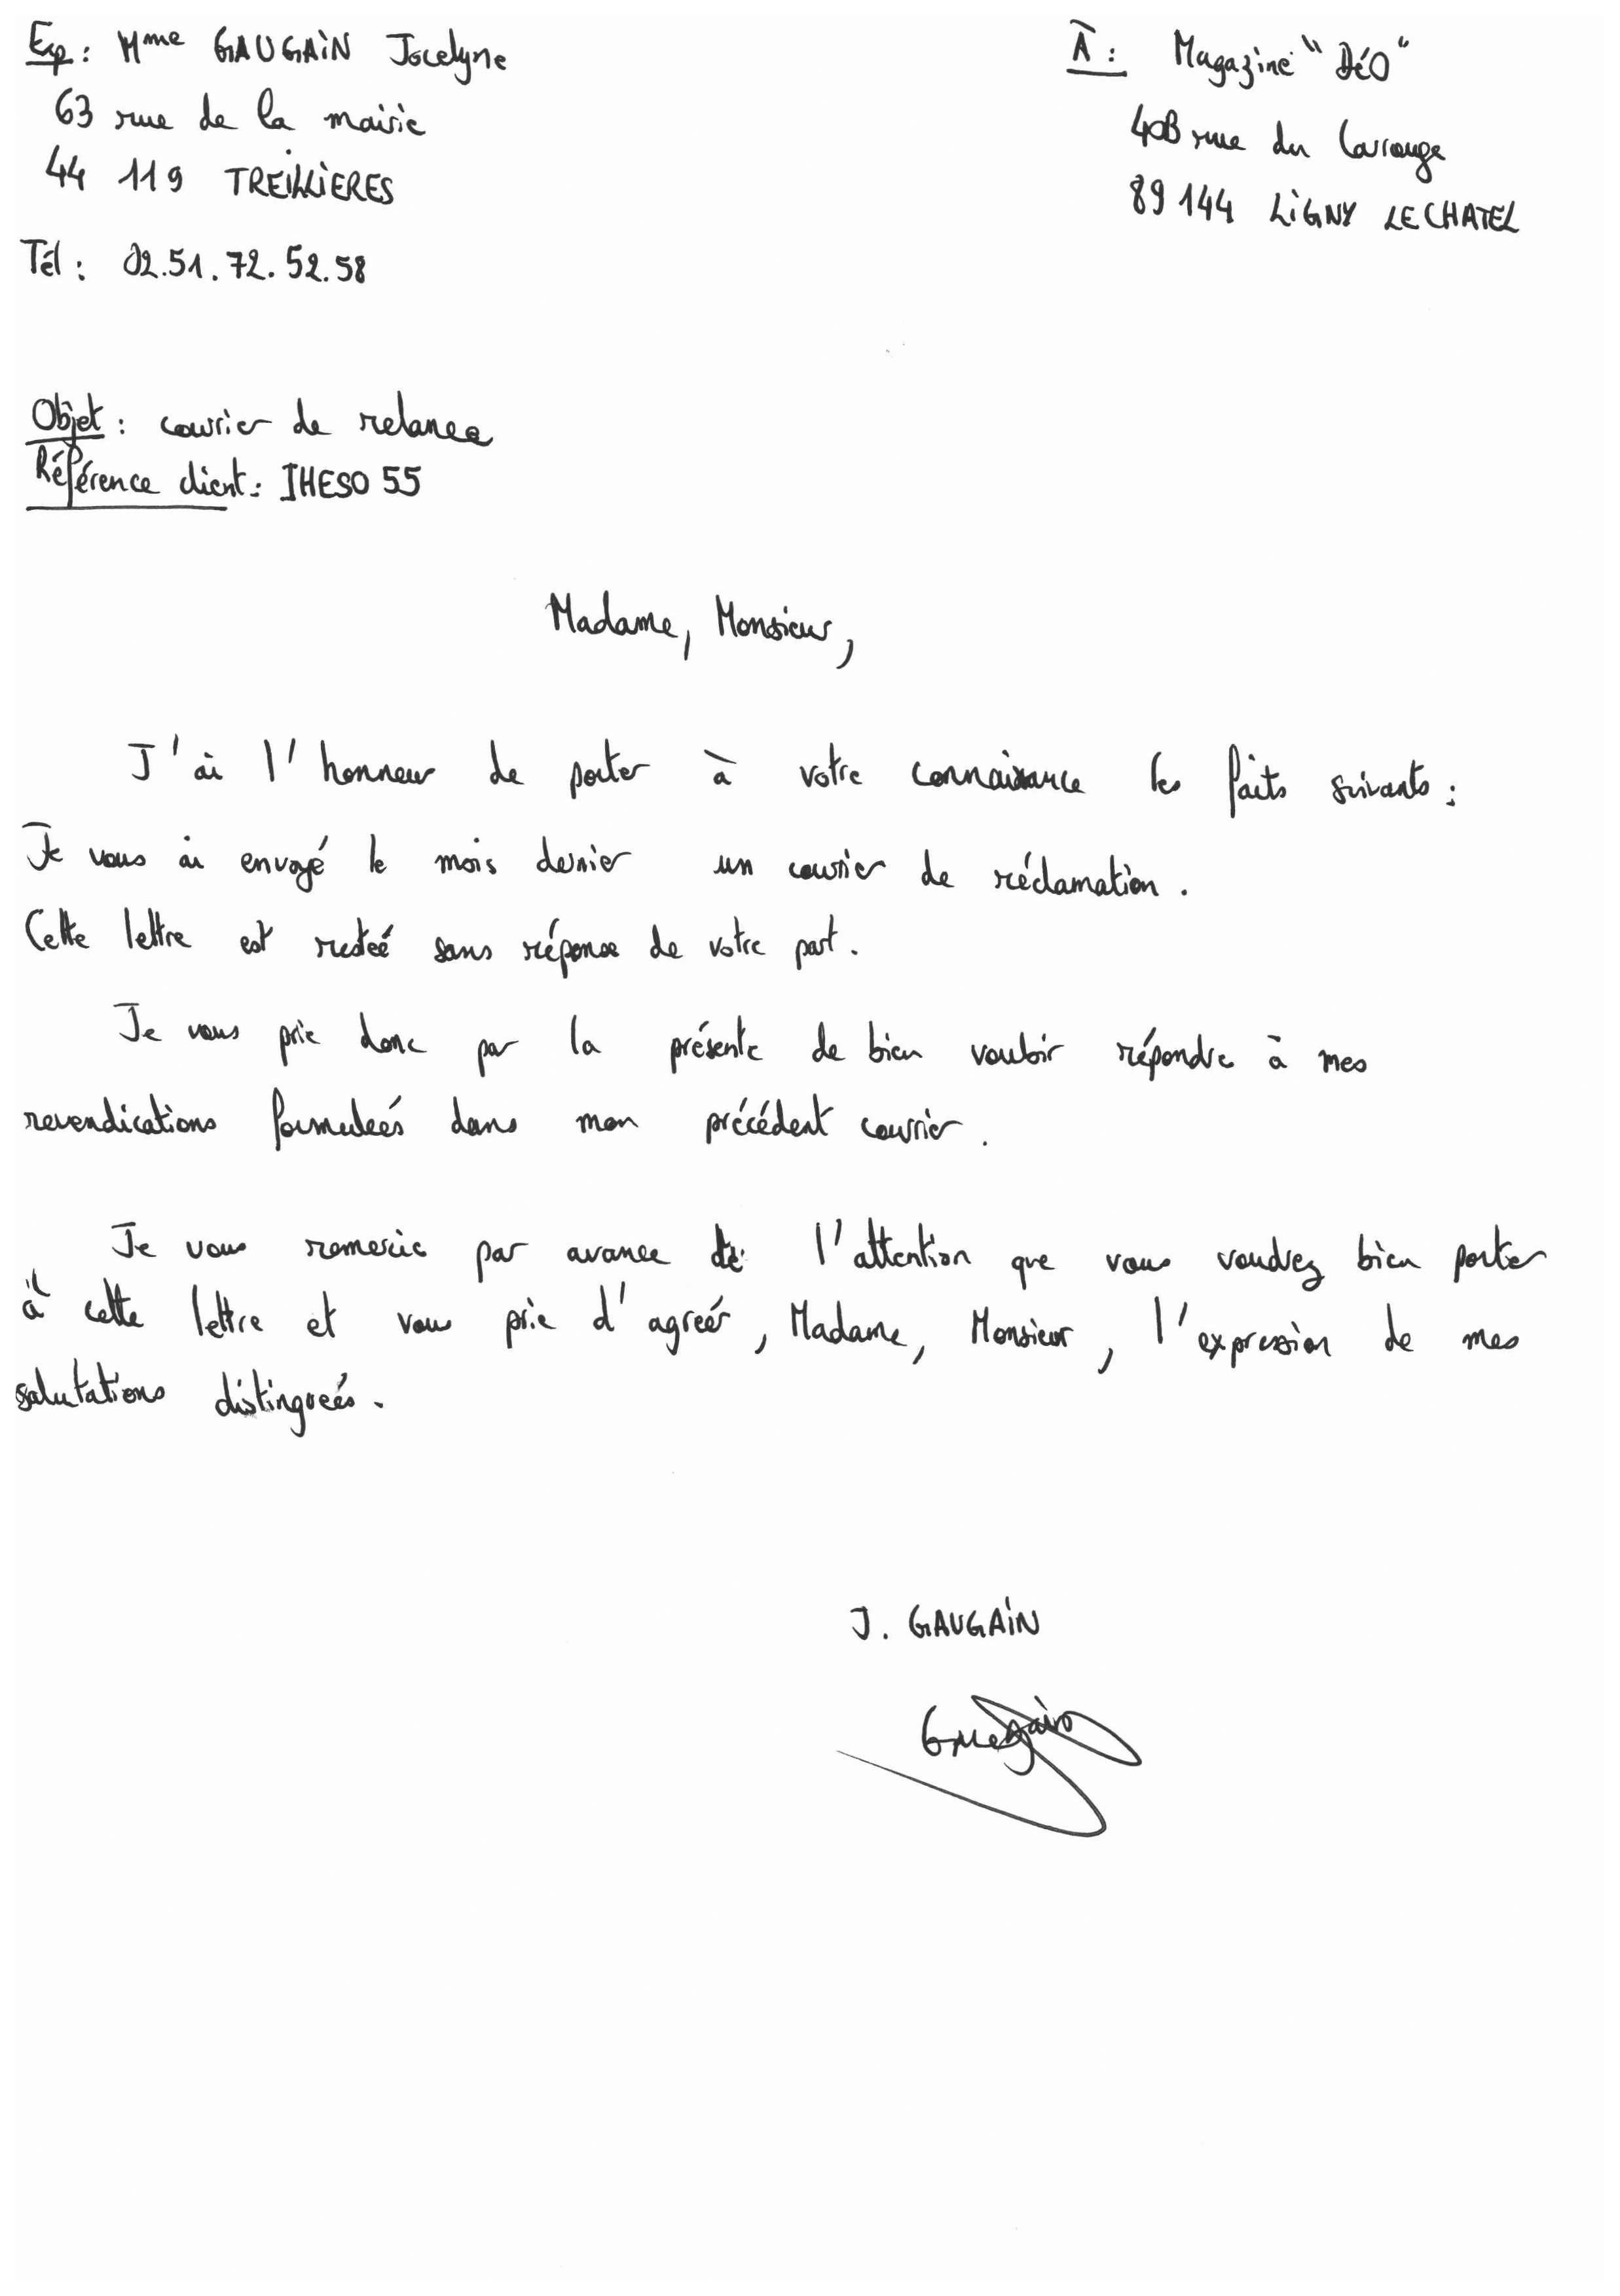 Exp : Mme GAUGAIN Jocelyne
63 rue de la mairie
44 119 TREILLIERES
Tél : 02.51.72.52.58
À : Magazine "DéO"
40B rue du Carrouge
89144 LIGNY LE CHATEL
Objet : courrier de relance
Référence client : IHESO 55
Madame, Monsieur,
J'ai l'honneur de porter à votre connaissance les faits suivants :
Je vous ai envoyé le mois dernier un courrier de réclamation.
Cette lettre est restée sans réponse de votre part.
Je vous prie donc par la présente de bien vouloir répondre à mes
revendications formulées dans mon précédent courrier.
Je vous remercie par avance de l'attention que vous voudrez bien porter
à cette lettre et vous prie d'agréer, Madame, Monsieur, l'expression de mes
salutations distinguées.
J. GAUGAIN
Gaugain